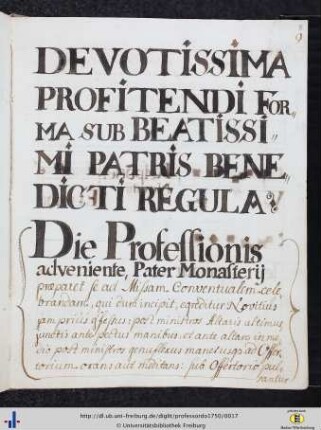 9
DEVOTISSIMA
PROFITENDI FOR
MA SUB BEATISSI„
MI PATRIS BENE„
DICTI REGULA
Die Professionis
adveniente, Pater Monasterij
præparet se ad Missam Conventualem cele
brandam, qui dum incipit, egreditur Novitius
jam prius assessus post ministros Altaris ultimus,
junctis ante pectus manibus, et ante altare in me
dio post ministros genuflexus manet usq ad Offer
torium orans aut meditans: sub Offertorio pul
santur
http://dl.ub.uni-freiburg.de/diglit/professords1750/0017
© Universitätsbibliothek Freiburg